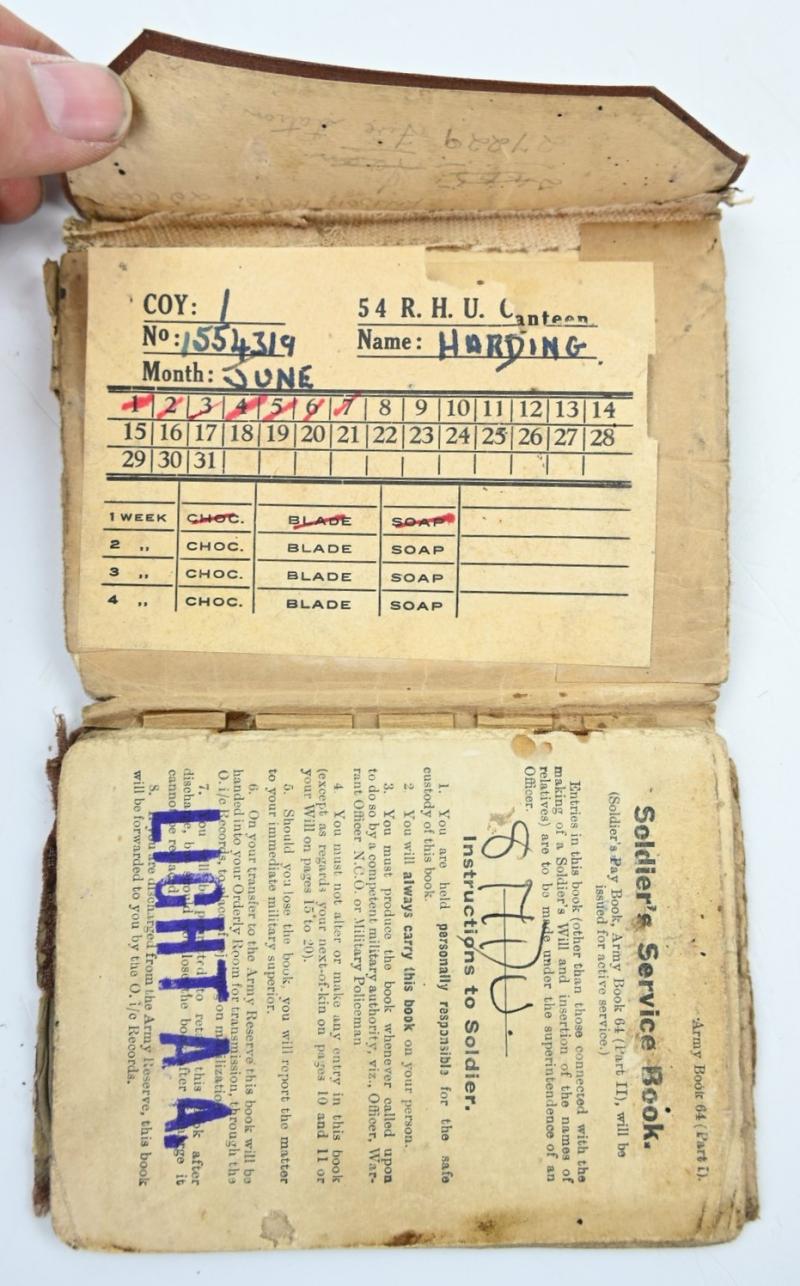 27229 Fire station
COY: 1
54 R. H. U. Canteen.
No: 1554319
Name: HARDING.
Month: JUNE
1 2 3 4 5 6 7 8 9 10 11 12 13 14
15 16 17 18 19 20 21 22 23 24 25 26 27 28
29 30 31
1 WEEK CHOC. BLADE SOAP
2 ,, CHOC. BLADE SOAP
3 ,, CHOC. BLADE SOAP
4 ,, CHOC. BLADE SOAP
Army Book 64 (Part I).
Soldier's Service Book.
(Soldier's Pay Book, Army Book 64 (Part II), will be
issued for active service.)
Entries in this book (other than those connected with the
making of a Soldier's Will and insertion of the names of
relatives) are to be made under the superintendence of an
Officer.
Instructions to Soldier.
1. You are held personally responsible for the safe
custody of this book.
2. You will always carry this book on your person.
3. You must produce the book whenever called upon
to do so by a competent military authority, viz., Officer, War-
rant Officer N.C.O. or Military Policeman
4 You must not alter or make any entry in this book
(except as regards your next-of-kin on pages 10 and 11 or
your Will on pages 15 to 20).
5. Should you lose the book, you will report the matter
to your immediate military superior.
6. On your transfer to the Army Reserve this book will be
handed into your Orderly Room for transmission, through the
O. i/c Records, to place of on mobilization
7. You will be permitted to retain this book after
discharge, but should lose the book after it
cannot be replaced
8. If you are discharged from the Army Reserve, this book
will be forwarded to you by the O. i/c Records.
LIGHT A A